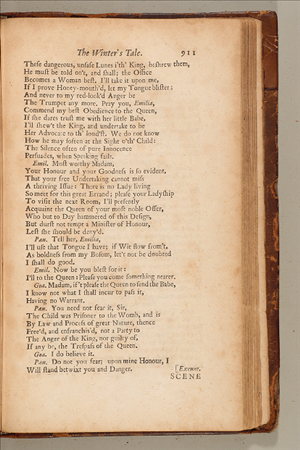 The Winter's Tale. 911
These dangerous, unsafe Lunes i'th' King, beshrew them,
He must be told on't, and shall; the Office
Becomes a Woman best. I'll take it upon me,
If I prove Honey-mouth'd, let my Tongue blister;
And never to my red-look'd Anger be
The Trumpet any more. Pray you, Emilia,
Commend my best Obedience to the Queen,
If she dares trust me with her little Babe,
I'll shew't the King, and undertake to be
Her Advocate to th' loud'st. We do not know
How he may soften at the Sight o'th' Child:
The Silence often of pure Innocence
Persuades, when Speaking fails.
Emil. Most worthy Madam,
Your Honour and your Goodness is so evident,
That your free Undertaking cannot miss
A thriving Issue: There is no Lady living
So meet for this great Errand; please your Ladyship
To visit the next Room, I'll presently
Acquaint the Queen of your most noble Offer,
Who but to Day hammered of this Design,
But durst not tempt a Minister of Honour,
Lest she should be deny'd.
Pau. Tell her, Emilia,
I'll use that Tongue I have; if Wit flow from't,
As boldness from my Bosom, let't not be doubted
I shall do good.
Emil. Now be you blest for it:
I'll to the Queen: Please you come something nearer.
Goa. Madam, if't please the Queen to send the Babe,
I know not what I shall incur to pass it,
Having no Warrant.
Pau. You need not fear it, Sir,
The Child was Prisoner to the Womb, and is
By Law and Process of great Nature, thence
Free'd, and enfranchis'd, not a Party to
The Anger of the King, nor guilty of,
If any be, the Trespass of the Queen.
Goa. I do believe it.
Pau. Do not you fear; upon mine Honour, I
Will stand betwixt you and Danger. [Exeunt.
SCENE